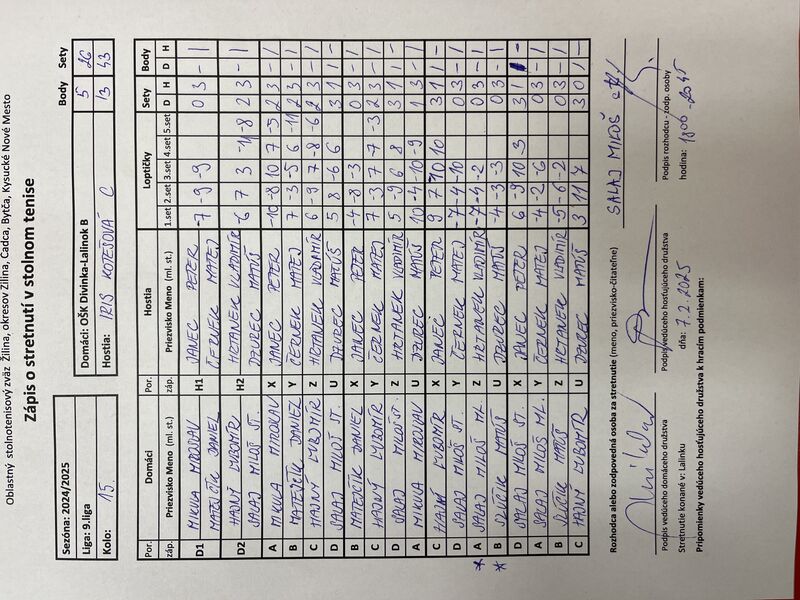 Oblastný stolnotenisový zväz Žilina, okresov Žilina, Čadca, Bytča, Kysucké Nové Mesto
Zápis o stretnutí v stolnom tenise
Sezóna: 2024/2025
Liga: 9.liga
Kolo: 15.
Body Sety
Domáci: OŠK Divinka-Lalinok B 5 26
Hostia: IRIS KOTEŠOVÁ C 13 43
Por. Domáci Por. Hostia Loptičky Sety Body
záp. Priezvisko Meno (ml. st.) záp. Priezvisko Meno (ml. st.) 1.set 2.set 3.set 4.set 5.set D H D H
D1 MIKULA MIROSLAV H1 JANEC PETER -7 -9 -9 0 3 - 1
MATEJČÍK DANIEL ČERNEK MATEJ
D2 HAJNÝ ĽUBOMÍR H2 HRTANEK VLADIMÍR -6 7 3 -11 -8 2 3 - 1
SALAJ MILOŠ ST. DZUREC MATÚŠ
A MIKULA MIROSLAV X JANEC PETER -10 -8 10 7 -5 2 3 - 1
B MATEJČÍK DANIEL Y ČERNEK MATEJ 7 -3 -5 6 -11 2 3 - 1
C HAJNÝ ĽUBOMÍR Z HRTANEK VLADIMÍR 6 -9 7 -8 -6 2 3 - 1
D SALAJ MILOŠ ST. U DZUREC MATÚŠ 5 8 -6 6 3 1 1 -
B MATEJČÍK DANIEL X JANEC PETER -4 -8 -3 0 3 - 1
C HAJNÝ ĽUBOMÍR Y ČERNEK MATEJ 7 -3 7 -7 -3 2 3 - 1
D SALAJ MILOŠ ST. Z HRTANEK VLADIMÍR 5 -9 6 8 3 1 1 -
A MIKULA MIROSLAV U DZUREC MATÚŠ 10 -4 -10 -9 1 3 - 1
C HAJNÝ ĽUBOMÍR X JANEC PETER 9 7 -10 10 3 1 1 -
D SALAJ MILOŠ ST. Y ČERNEK MATEJ -7 -4 -10 0 3 - 1
* A SALAJ MILOŠ ML. Z HRTANEK VLADIMÍR -7 -4 -2 0 3 - 1
* B MATÚŠ U DZUREC MATÚŠ -4 -3 -3 0 3 - 1
D SALAJ MILOŠ ST. X JANEC PETER 6 -9 10 3 3 1 1 -
A SALAJ MILOŠ ML. Y ČERNEK MATEJ -4 -2 -6 0 3 - 1
B MATÚŠ Z HRTANEK VLADIMÍR -5 -6 -2 0 3 - 1
C HAJNÝ ĽUBOMÍR U DZUREC MATÚŠ 3 11 7 3 0 1 -
Rozhodca alebo zodpovedná osoba za stretnutie (meno, priezvisko-čitateľne) SALAJ MILOŠ
Podpis vedúceho domáceho družstva Podpis vedúceho hosťujúceho družstva Podpis rozhodcu - zodp. osoby
Stretnutie konané v: Lalinku dňa: 7.2.2025 hodina: 1800 - 2045
Pripomienky vedúceho hosťujúceho družstva k hracím podmienkam: